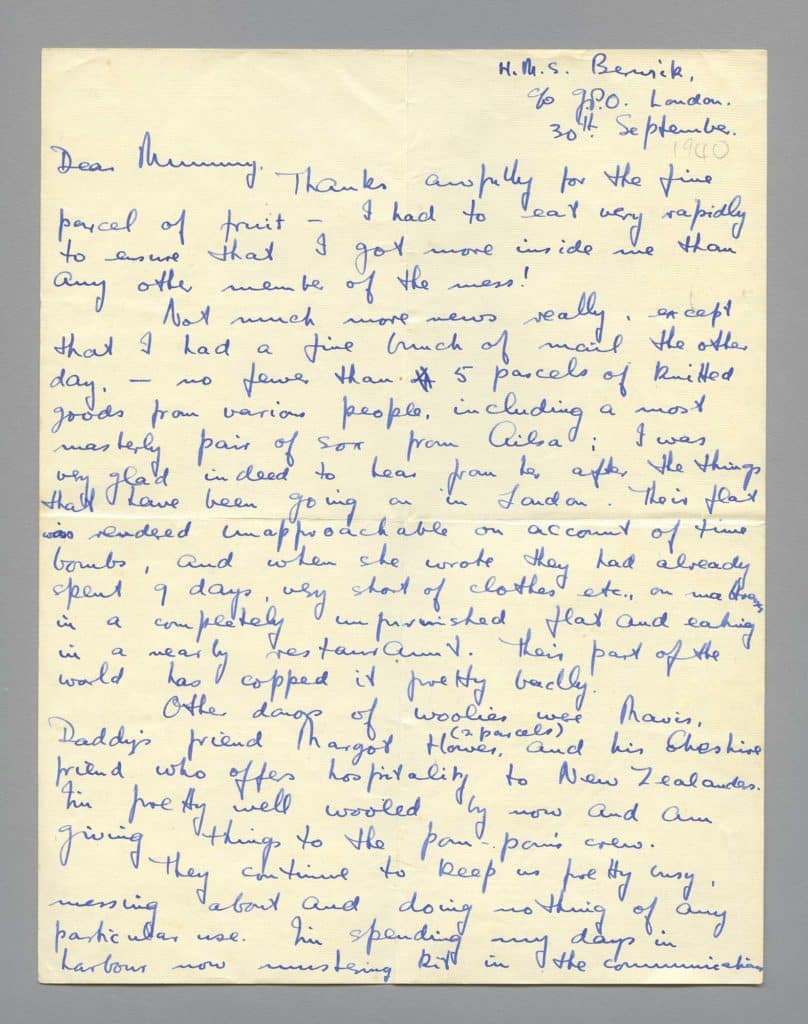 H.M.S. Berwick,
c/o G.P.O. London.
30th. September.
1940
Dear Mummy,
Thanks awfully for the fine
parcel of fruit – I had to eat very rapidly
to ensure that I got more inside me than
any other member of the mess!
Not much more news really, except
that I had a fine bunch of mail the other
day, – no fewer than 5 parcels of knitted
goods from various people, including a most
masterly pair of sox from Ailsa; I was
very glad indeed to hear from her after the things
that have been going on in London. Their flat
was rendered unapproachable on account of time
bombs, and when she wrote they had already
spent 9 days, very short of clothes etc., on mattresses
in a completely unfurnished flat and eating
in a nearby restaurant. Their part of the
world has copped it pretty badly.
Other donors of woolies were Mavis,
(2 parcels)
Daddy's friend Margot Howes, and his Cheshire
friend who offers hospitality to New Zealanders.
I'm pretty well wooled by now and am
giving things to the pom-pom's crew.
They continue to keep us pretty busy,
messing about and doing nothing of any
particular use. I'm spending my days in
harbour now mustering kit in the communication